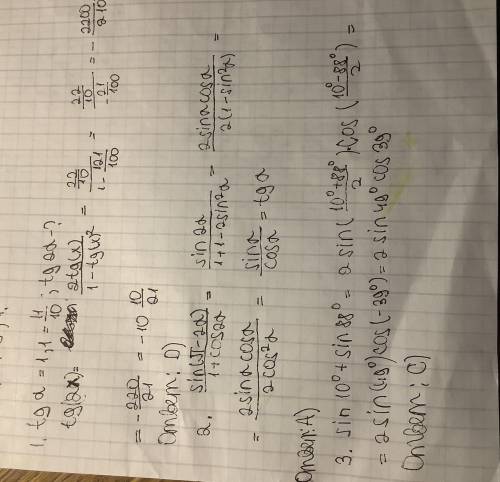 1. tg a = 1,1 = 11/10 ; tg 2a - ?
tg(2x) = 2tg(x)/(1 - tg(x)²) = (22/10)/(1 - 121/100) = (22/10)/(-21/100) = - 2200/210
= - 220/21 = -10 10/21
Ответ: D)
2. sin(π-2a)/(1+cos2a) = sin2a/(1+1-2sin²a) = 2sina cosa/(2(1-sin²a)) =
= 2sina cosa/(2cos²a) = sina/cosa = tga
Ответ: A)
3. sin 10° + sin 88° = 2 sin((10°+88°)/2)·cos((10°-88°)/2) =
= 2 sin(49°)cos(-39°) = 2 sin 49° cos 39°
Ответ: C)